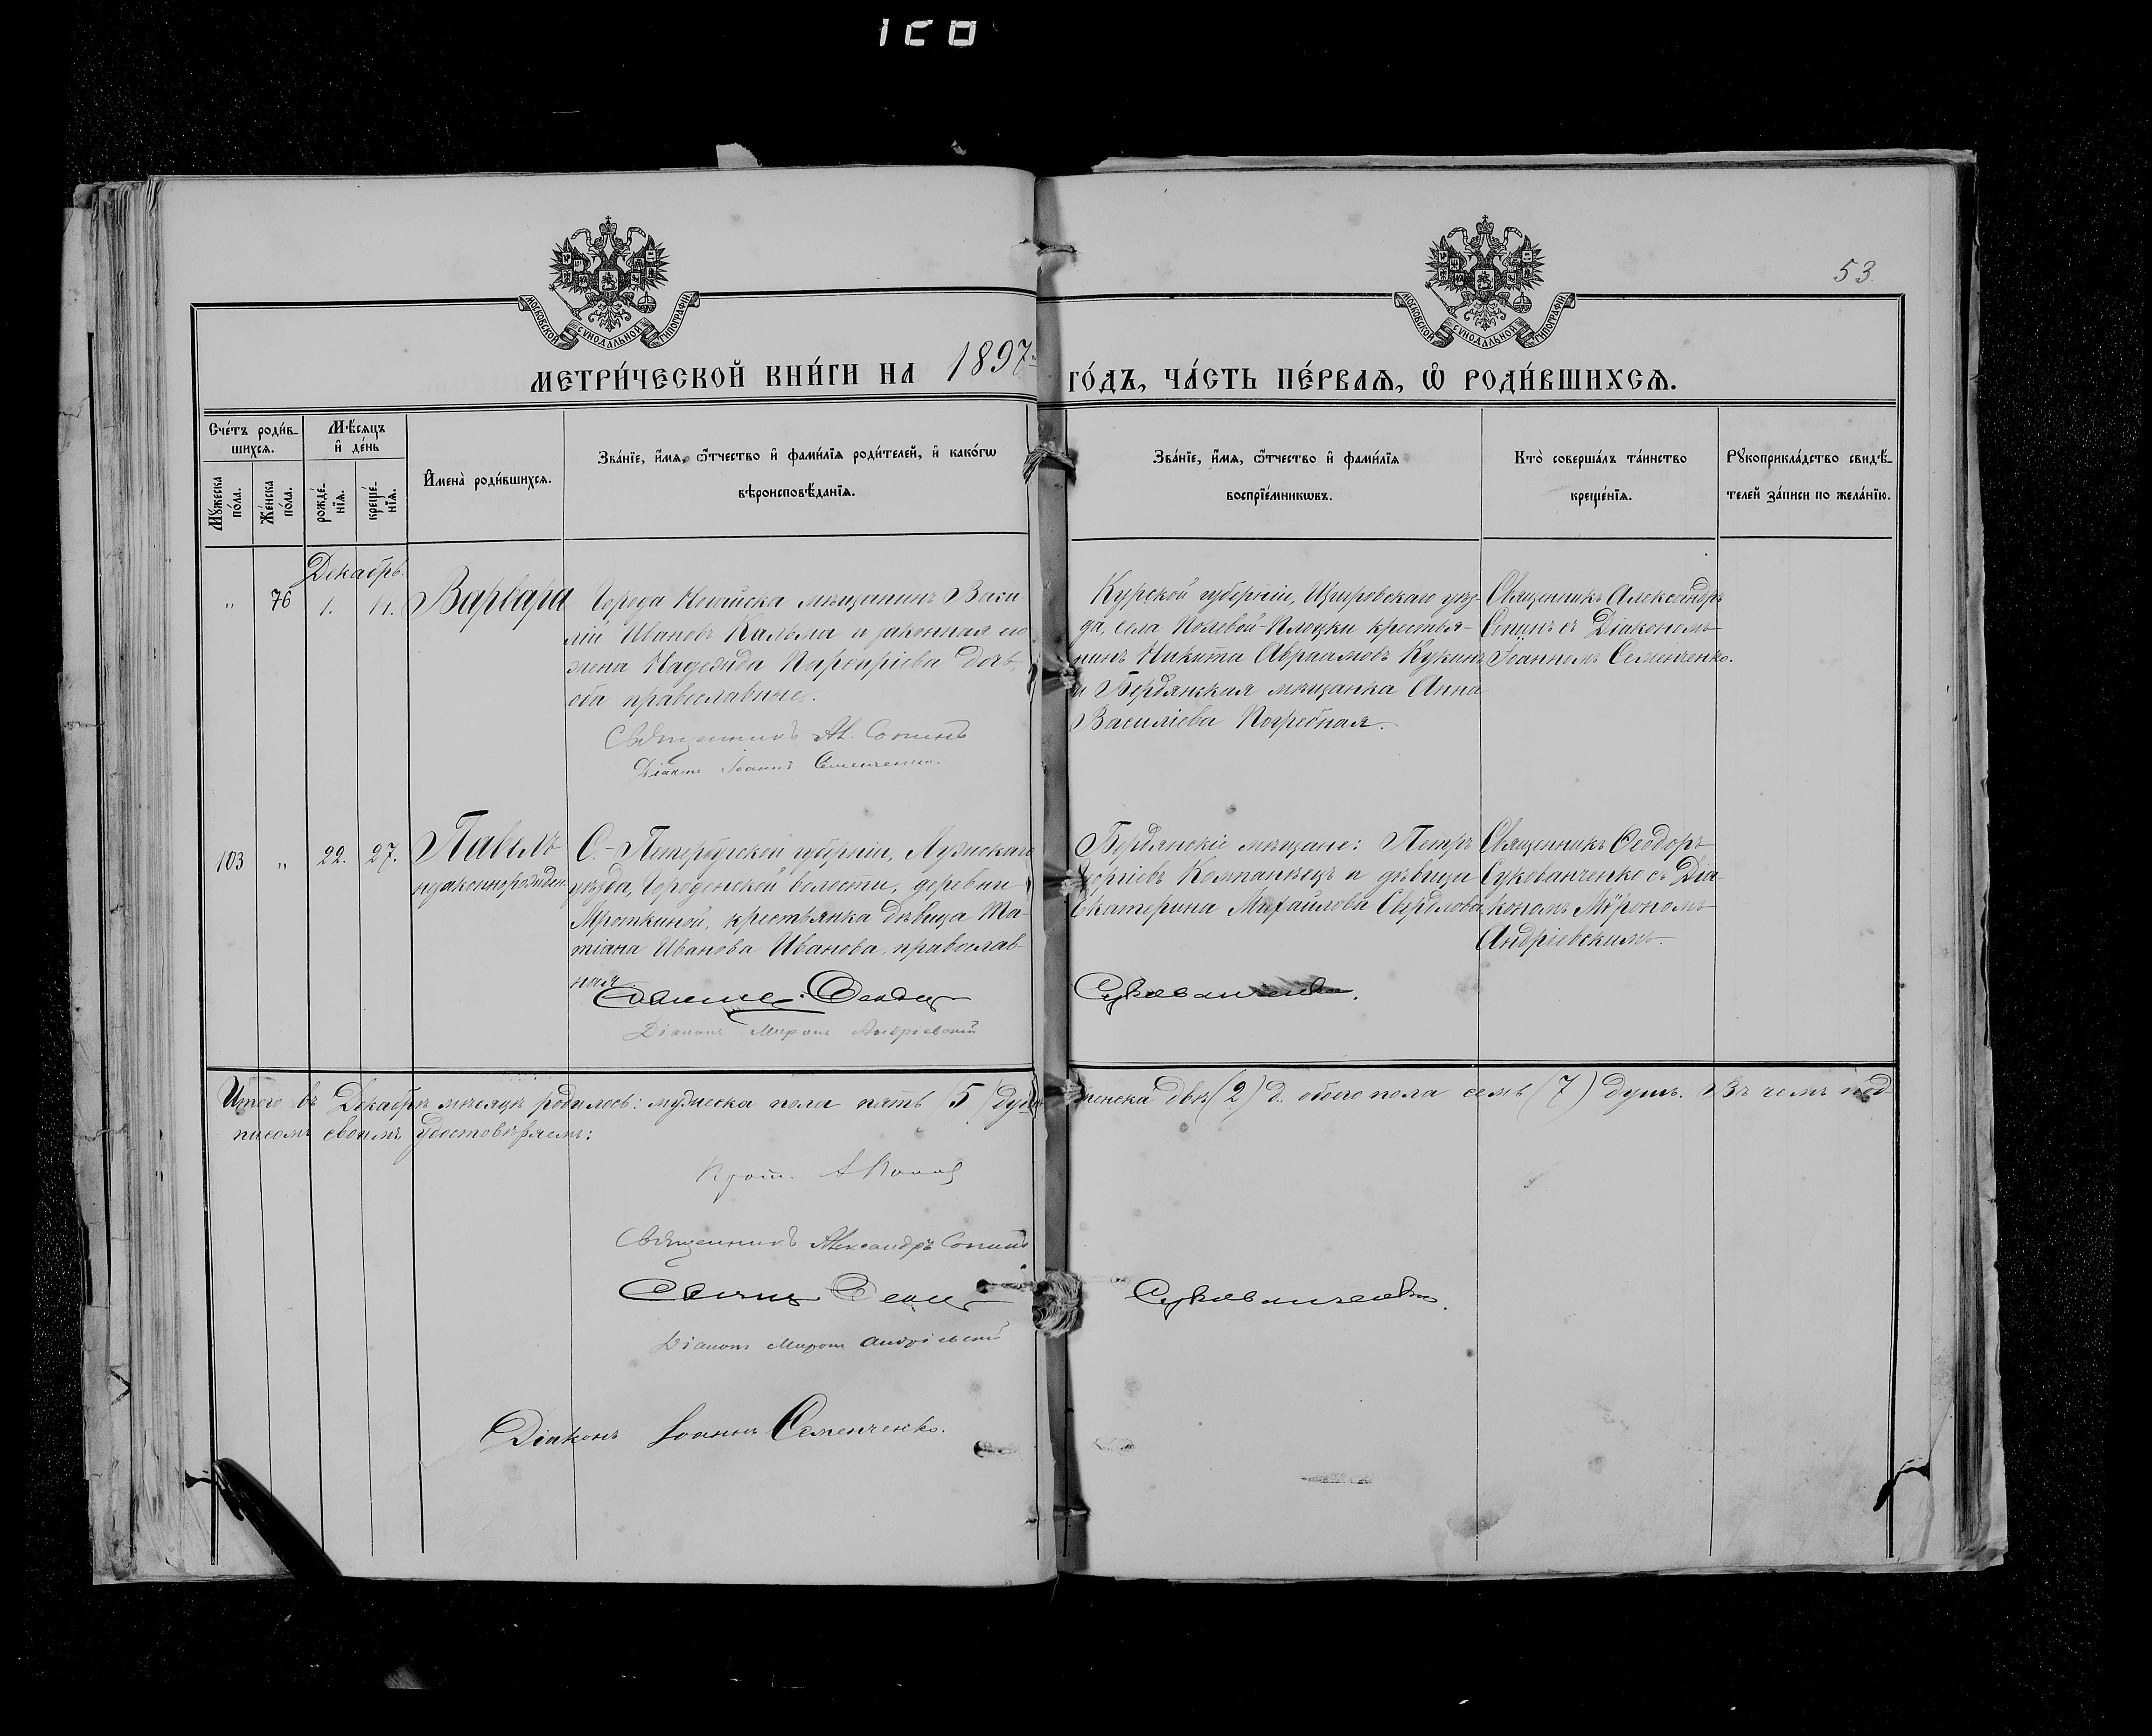 53
МОСКОВСКОЙ СѴНОДАЛЬНОЙ ТИПОГРАФІИ
МОСКОВСКОЙ СѴНОДАЛЬНОЙ ТИПОГРАФІИ
МЕТРИ́ЧЕСКОЙ КНИ́ГИ НА 1897 ГО́ДЪ, ЧА́СТЬ ПЕ́РВАѦ, Ѽ РОДИ́ВШИХСѦ.
Сче́тъ роди́в-
шихсѧ.
Мꙋ́жеска
по́ла.
Же́нска
по́ла.
Мѣ́сѧцъ
и҆ де́нь
рожде́-
нїѧ.
креще́-
нїѧ.
И҆мена̀ роди́вшихсѧ.
Зва́нїе, и҆́мѧ, ѻ҆́тчество и҆ фами́лїѧ роди́телей, и҆ како́гѡ
вѣроисповѣ́данїѧ.
Зва́нїе, и҆́мѧ, ѻ҆́тчество и҆ фами́лїѧ
воспрїе́мникѡвъ.
Кто̀ соверша́лъ та́инство
креще́нїѧ.
Рꙋкоприкла́дство свидѣ́-
телей за́писи по жела́нїю.
Декабрь.
" 76 1. 11. Варвара
Города Ногайска мѣщанинъ Васи-
лій Ивановъ Кальма и законная его
жена Надежда Парфиріева дочь,
оба православные.
Священникъ Ал. Сопинъ
Діаконъ Іоаннъ Семенченко.
Курской губерніи, Щигровскаго уѣз-
да, села крестья-
нинъ Никита Авраамовъ Кукинъ
и Бердянская мѣщанка Анна
Василіева Погребная.
Священникъ Александръ
Сопинъ съ Діакономъ
Іоанномъ Семенченко.
103 " 22. 27. Павелъ
незаконнорожден.
С.-Петербургской губерніи, Лужскаго
уѣзда, Городенской волости, деревни
крестьянка дѣвица Та-
тіана Иванова Иванова, православ-
ная.
Священ. Феодор Сукованченко.
Діаконъ Миронъ Андріевскій
Бердянскіе мѣщане: Петръ
Георгіевъ Компанѣецъ и дѣвица
Екатерина Михайлова
Священникъ Ѳеодоръ
Сукованченко съ Діа-
кономъ Мѵрономъ
Андріевскимъ.
Итого въ Декабрѣ мѣсяцѣ родилось: мужеска пола пять (5) душъ женска двѣ (2) д. обоего пола семь (7) душъ. Въ чемъ под-
писомъ своимъ удостовѣряемъ:
Прот. А Попов
Священникъ Александръ Сопинъ
Священ Феодор Сукованченко.
Діаконъ Миронъ Андріевскій
Діаконъ Іоаннъ Семенченко.